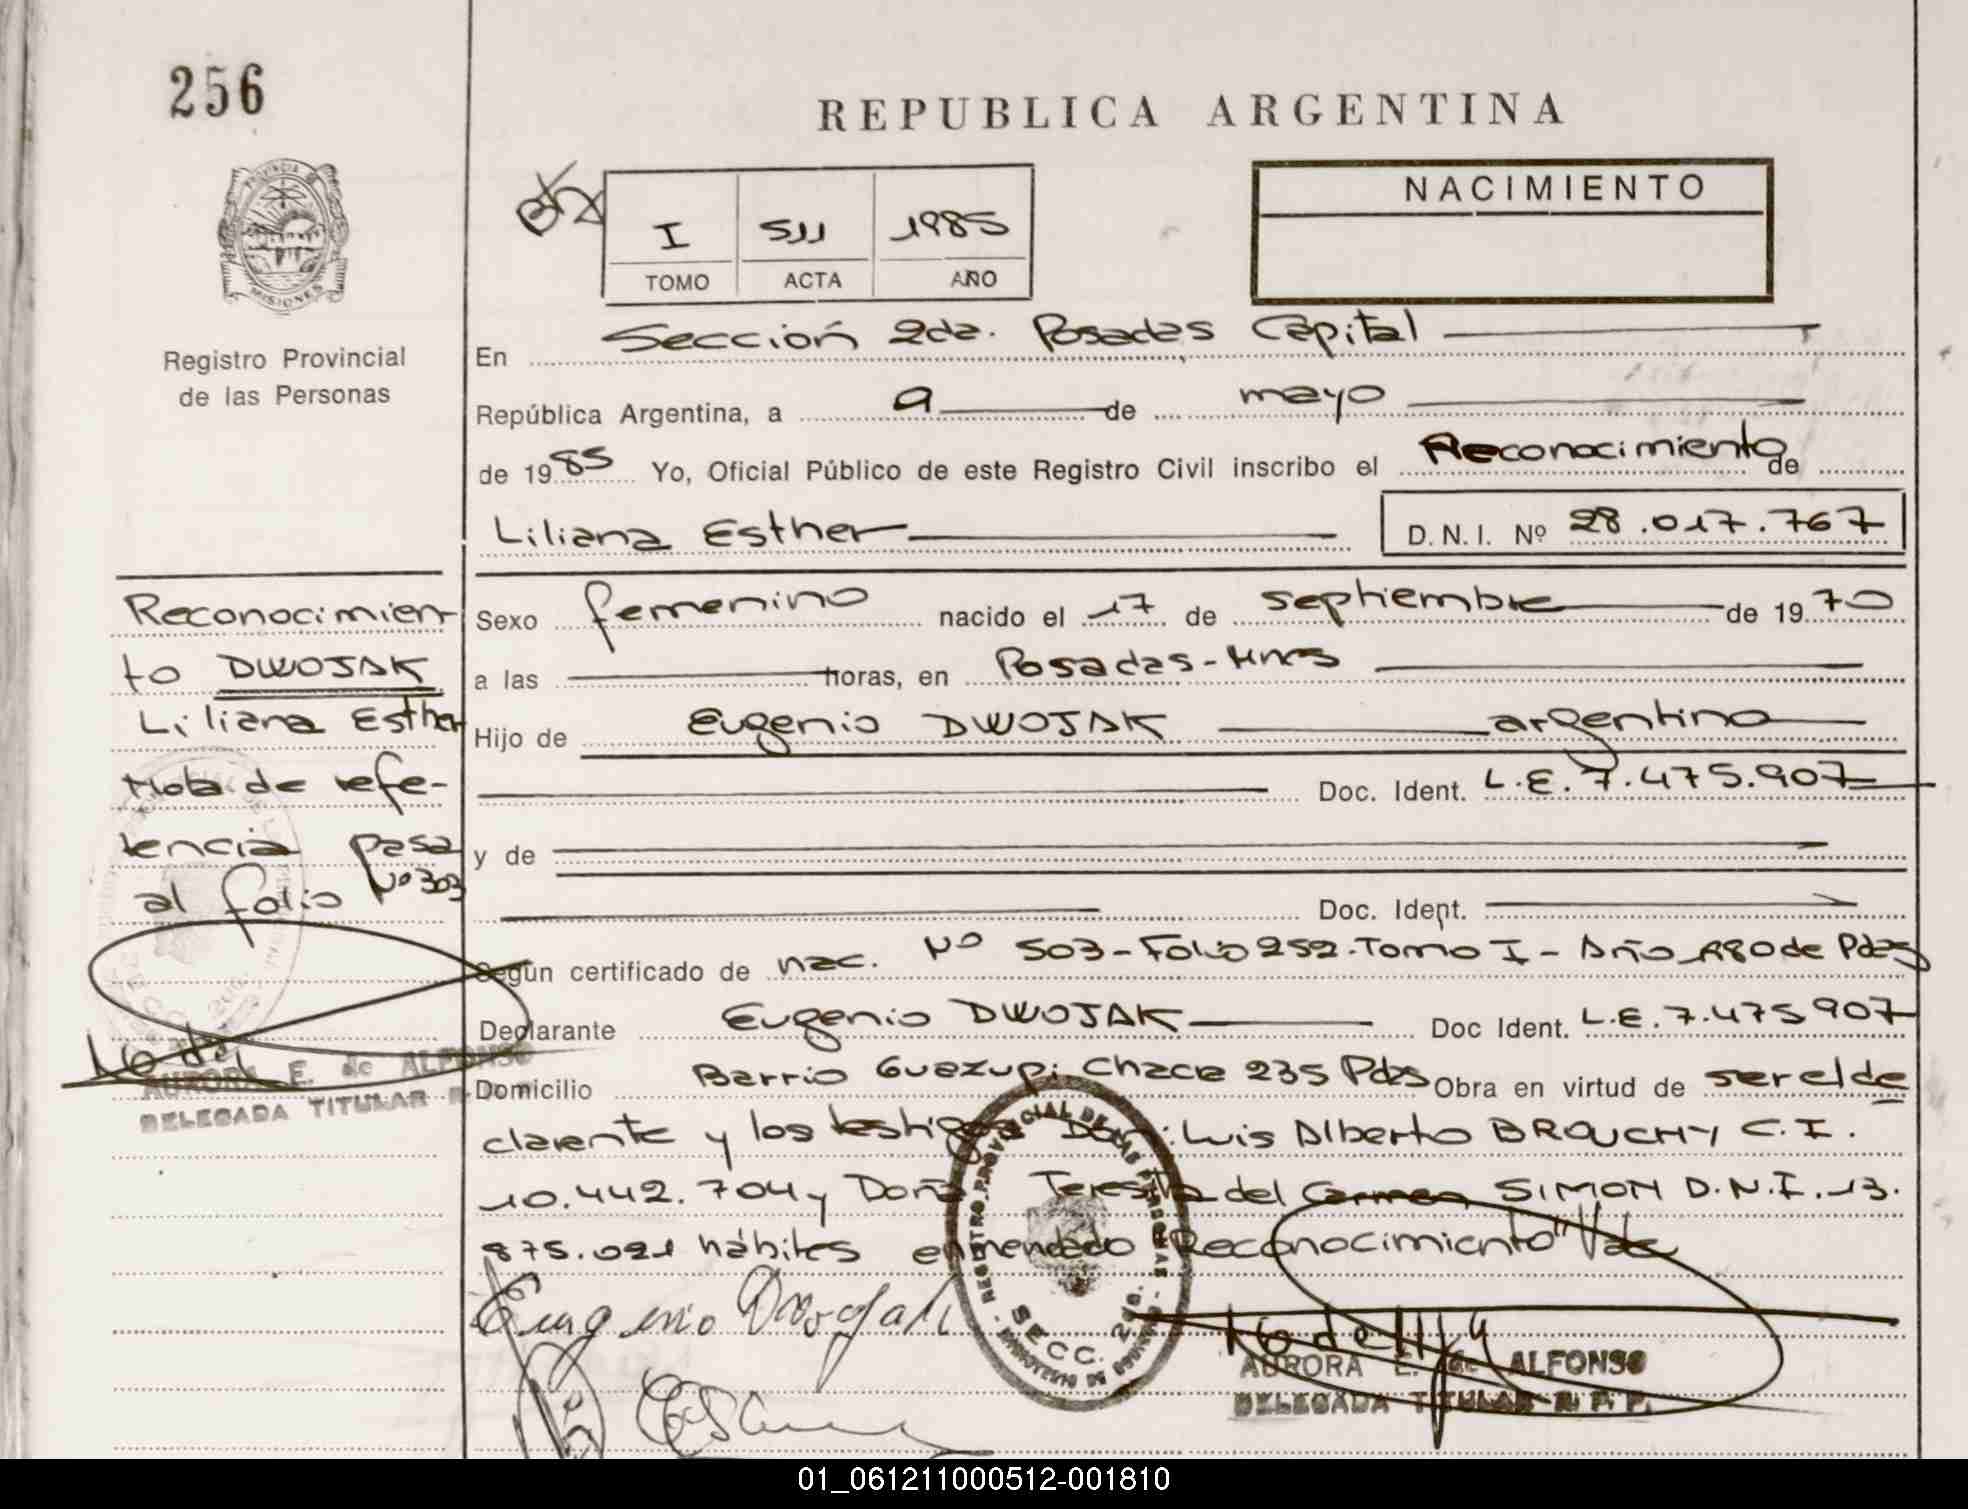 256
REPUBLICA ARGENTINA
PROVINCIA DE
MISIONES
Registro Provincial
de las Personas
I 511 1985
TOMO ACTA AÑO
NACIMIENTO
En Sección 2da. Posadas Capital
República Argentina, a 9 de mayo
de 1985 Yo, Oficial Público de este Registro Civil inscribo el Reconocimiento de
Liliana Esther D.N.I. Nº 28.017.767
Sexo femenino nacido el 17 de septiembre de 1970
a las horas, en Posadas-Mnes
Hijo de Eugenio DWOJAK argentino
Doc. Ident. L.E. 7.475.907
y de
Doc. Ident.
Según certificado de nac. Nº 503-Folio 252-Tomo I-Año 1980 de Pdas
Declarante Eugenio DWOJAK Doc Ident. L.E. 7.475907
Domicilio Barrio Guazupi Chacra 235 Pdas Obra en virtud de ser el de
clarante y los testigos Don: Luis Alberto BROUCHY C.I.
10.442.704 y Doña Teresita del Carmen SIMON D.N.I. 13.
875.021 hábiles enmendado "Reconocimiento" Vale
Eugenio Dwojak
REGISTRO PROVINCIAL DE LAS PERSONAS
SECC. 2da.
MINISTERIO DE GOBIERNO
AURORA E. de ALFONSO
DELEGADA TITULAR R. P. P.
Reconocimien
to DWOJAK
Liliana Esther
Nota de refe-
rencia pasa
al folio Nº 303
AURORA E. de ALFONSO
DELEGADA TITULAR R.
01_061211000512-001810